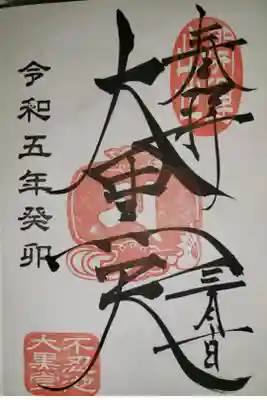 奉拝
三月
大黒天
令和五年癸卯
不忍池
大黒堂